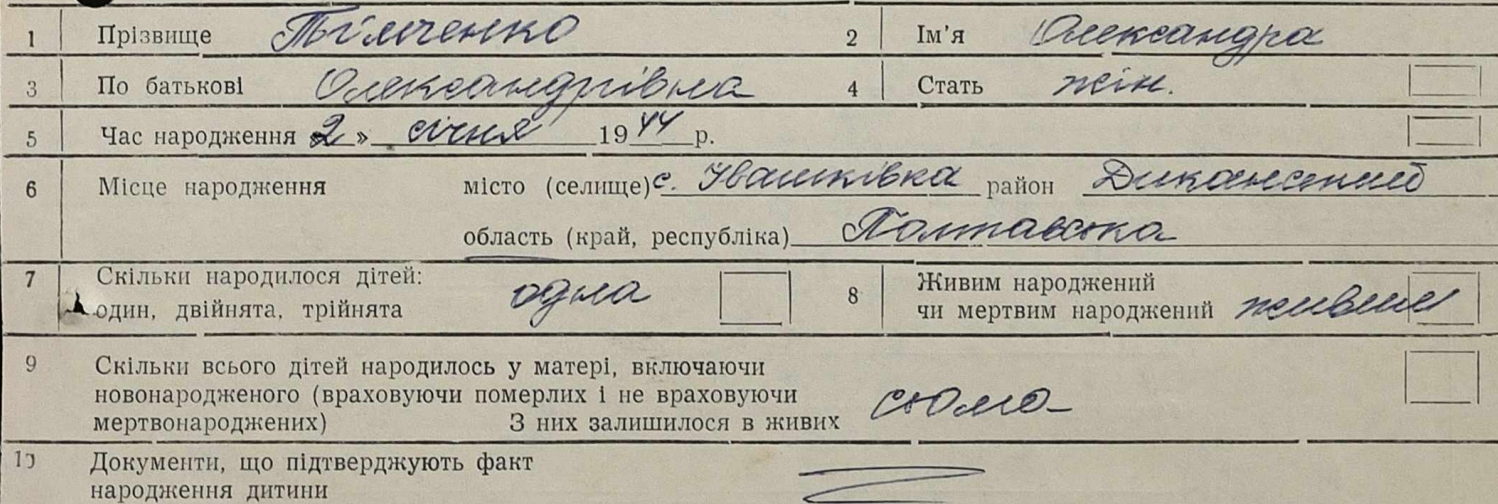 1 Прізвище Тімченко 2 Ім'я Олександра
3 По батькові Олександрівна 4 Стать жін.
5 Час народження 2 » січня 1944 р.
6 Місце народження місто (селище) с. Івашківка район Диканський
область (край, республіка) Полтавська
7 Скільки народилося дітей:
один, двійнята, трійнята одна
8 Живим народжений
чи мертвим народжений живим
9 Скільки всього дітей народилось у матері, включаючи
новонародженого (враховуючи померлих і не враховуючи
мертвонароджених) З них залишилося в живих сьома
10 Документи, що підтверджують факт
народження дитини